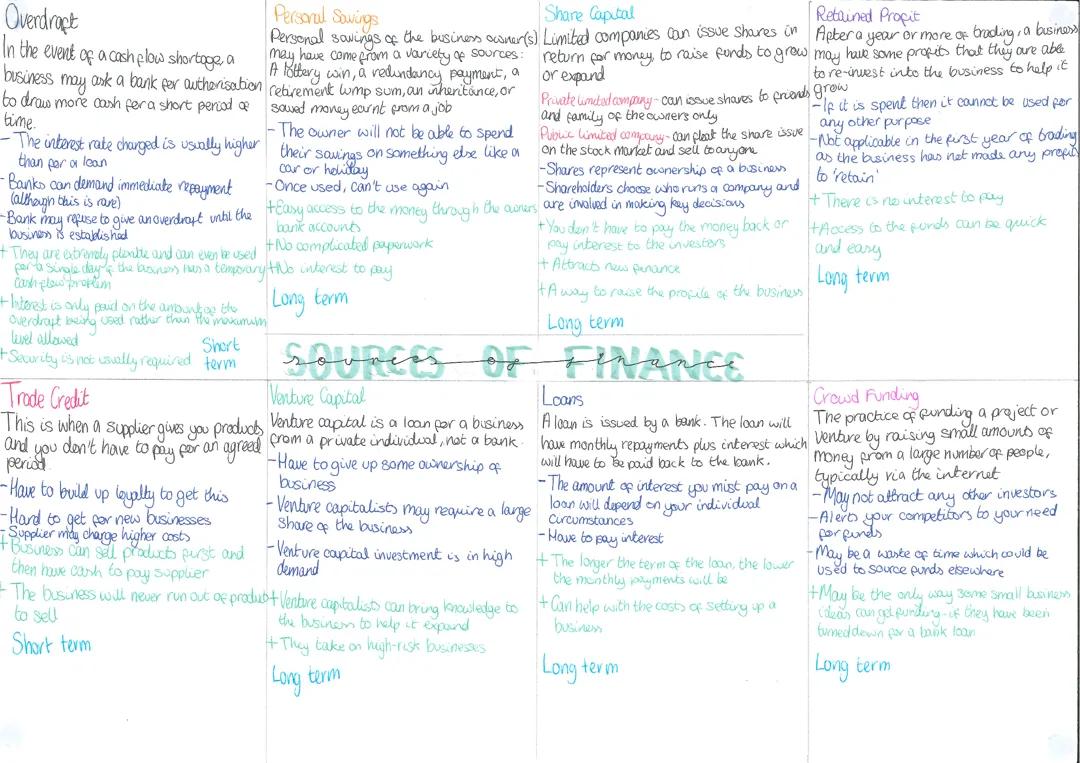 Overdraft
In the event of a cash flow shortage, a
business may ask a bank for authorisation
to draw more cash for a short period of
time.
- The interest rate charged is usually higher
than for a loan
- Banks can demand immediate repayment
(although this is rare)
- Bank may refuse to give an overdraft until the
business is established
+ They are extremely flexible and can even be used
for a single day if the business has a temporary
cash flow problem
+ Interest is only paid on the amount of the
overdraft being used rather than the maximum
level allowed
+ Security is not usually required
Short
term
Personal Savings
Personal savings of the business owner(s)
may have come from a variety of sources:
A lottery win, a redundancy payment, a
retirement lump sum, an inheritance, or
saved money earnt from a job
- The owner will not be able to spend
their savings on something else like a
car or holiday
- Once used, can't use again
+ Easy access to the money through the owners
bank accounts
+ No complicated paperwork
+ No interest to pay
Long term
Share Capital
Limited companies can issue shares in
return for money, to raise funds to grow
or expand
Private limited company - can issue shares to friends
and family of the owners only
Public limited company - can float the share issue
on the stock market and sell to anyone
- Shares represent ownership of a business
- Shareholders choose who runs a company and
are involved in making key decisions
+ You don't have to pay the money back or
pay interest to the investors
+ Attracts new finance
+ A way to raise the profile of the business
Long term
Retained Profit
After a year or more of trading, a business
may have some profits that they are able
to re-invest into the business to help it
grow
- If it is spent then it cannot be used for
any other purpose
- Not applicable in the first year of trading
as the business has not made any profit
to 'retain'
+ There is no interest to pay
+ Access to the funds can be quick
and easy
Long term
SOURCES OF FINANCE
sources of finance
Trade Credit
This is when a supplier gives you products
and you don't have to pay for an agreed
period.
- Have to build up loyalty to get this
- Hard to get for new businesses
- Supplier may charge higher costs
+ Business can sell products first and
then have cash to pay supplier
+ The business will never run out of product
to sell
Short term
Venture Capital
Venture capital is a loan for a business
from a private individual, not a bank.
- Have to give up some ownership of
business
- Venture capitalists may require a large
share of the business
- Venture capital investment is in high
demand
+ Venture capitalists can bring knowledge to
the business to help it expand
+ They take on high-risk businesses
Long term
Loans
A loan is issued by a bank. The loan will
have monthly repayments plus interest which
will have to be paid back to the bank.
- The amount of interest you must pay on a
loan will depend on your individual
circumstances
- Have to pay interest
+ The longer the term of the loan, the lower
the monthly payments will be
+ Can help with the costs of setting up a
business
Long term
Crowd Funding
The practice of funding a project or
venture by raising small amounts of
money from a large number of people,
typically via the internet
- May not attract any other investors
- Alerts your competitors to your need
for funds
- May be a waste of time which could be
used to source funds elsewhere
+ May be the only way some small business
ideas can get funding - if they have been
turned down for a bank loan
Long term